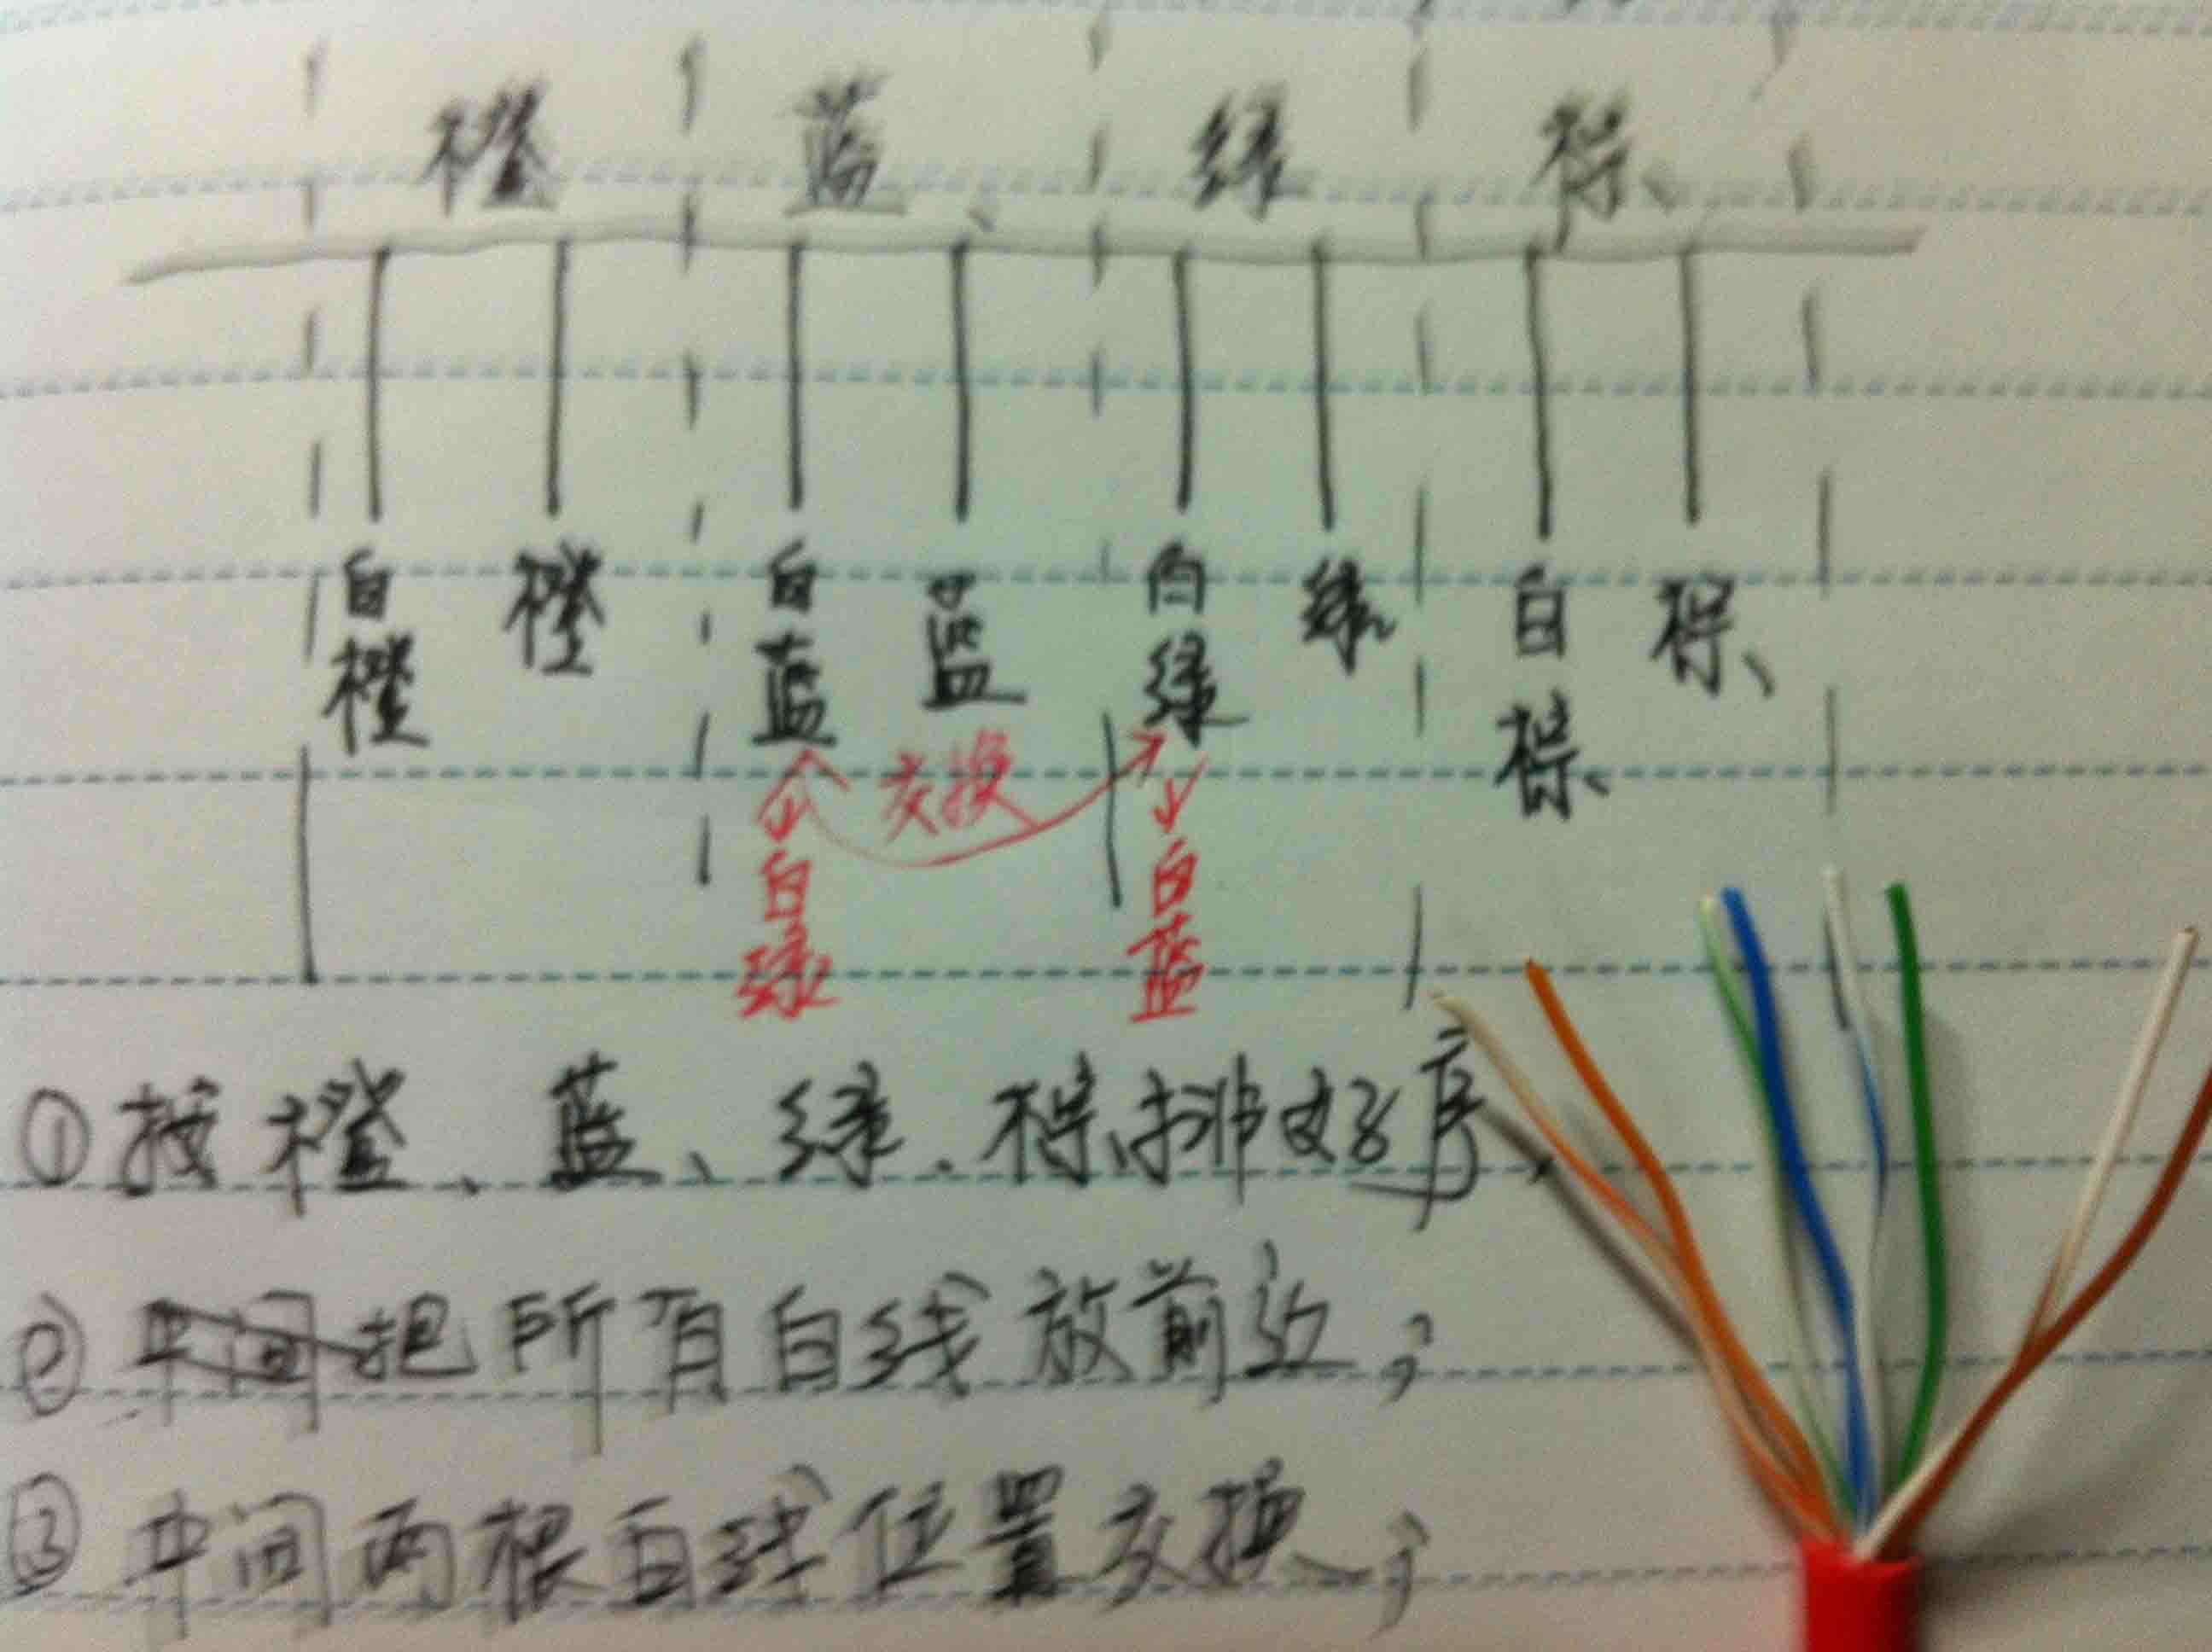 橙 蓝 绿 棕
白橙 橙 白蓝 蓝 白绿 绿 白棕 棕
交换
白绿 白蓝
①按橙、蓝、绿、棕排好序
②把所有白线放前边；
③中间两根白线位置交换；